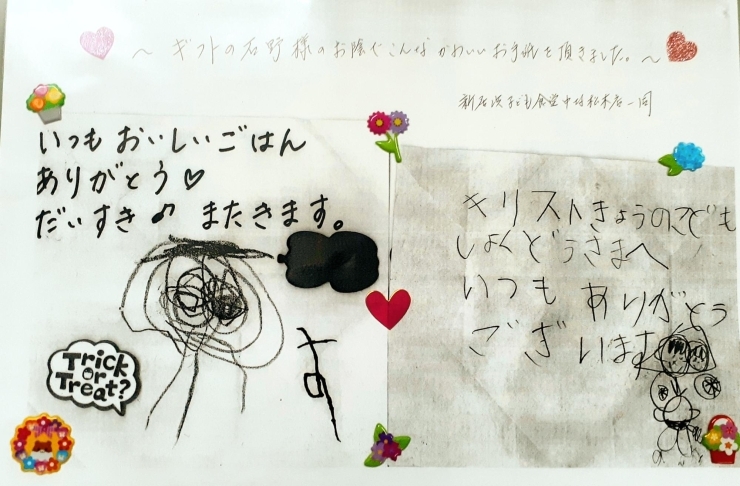 ～ ギフトの石野様のお陰でこんなかわいいお手紙を頂きました。～
新居浜子ども食堂中村松木店一同
いつも おいしいごはん
ありがとう♡
だいすき♪ またきます。
Trick
or
Treat?
キリストきょうのこども
しょくどうさまへ
いつも ありがとう
ござ います